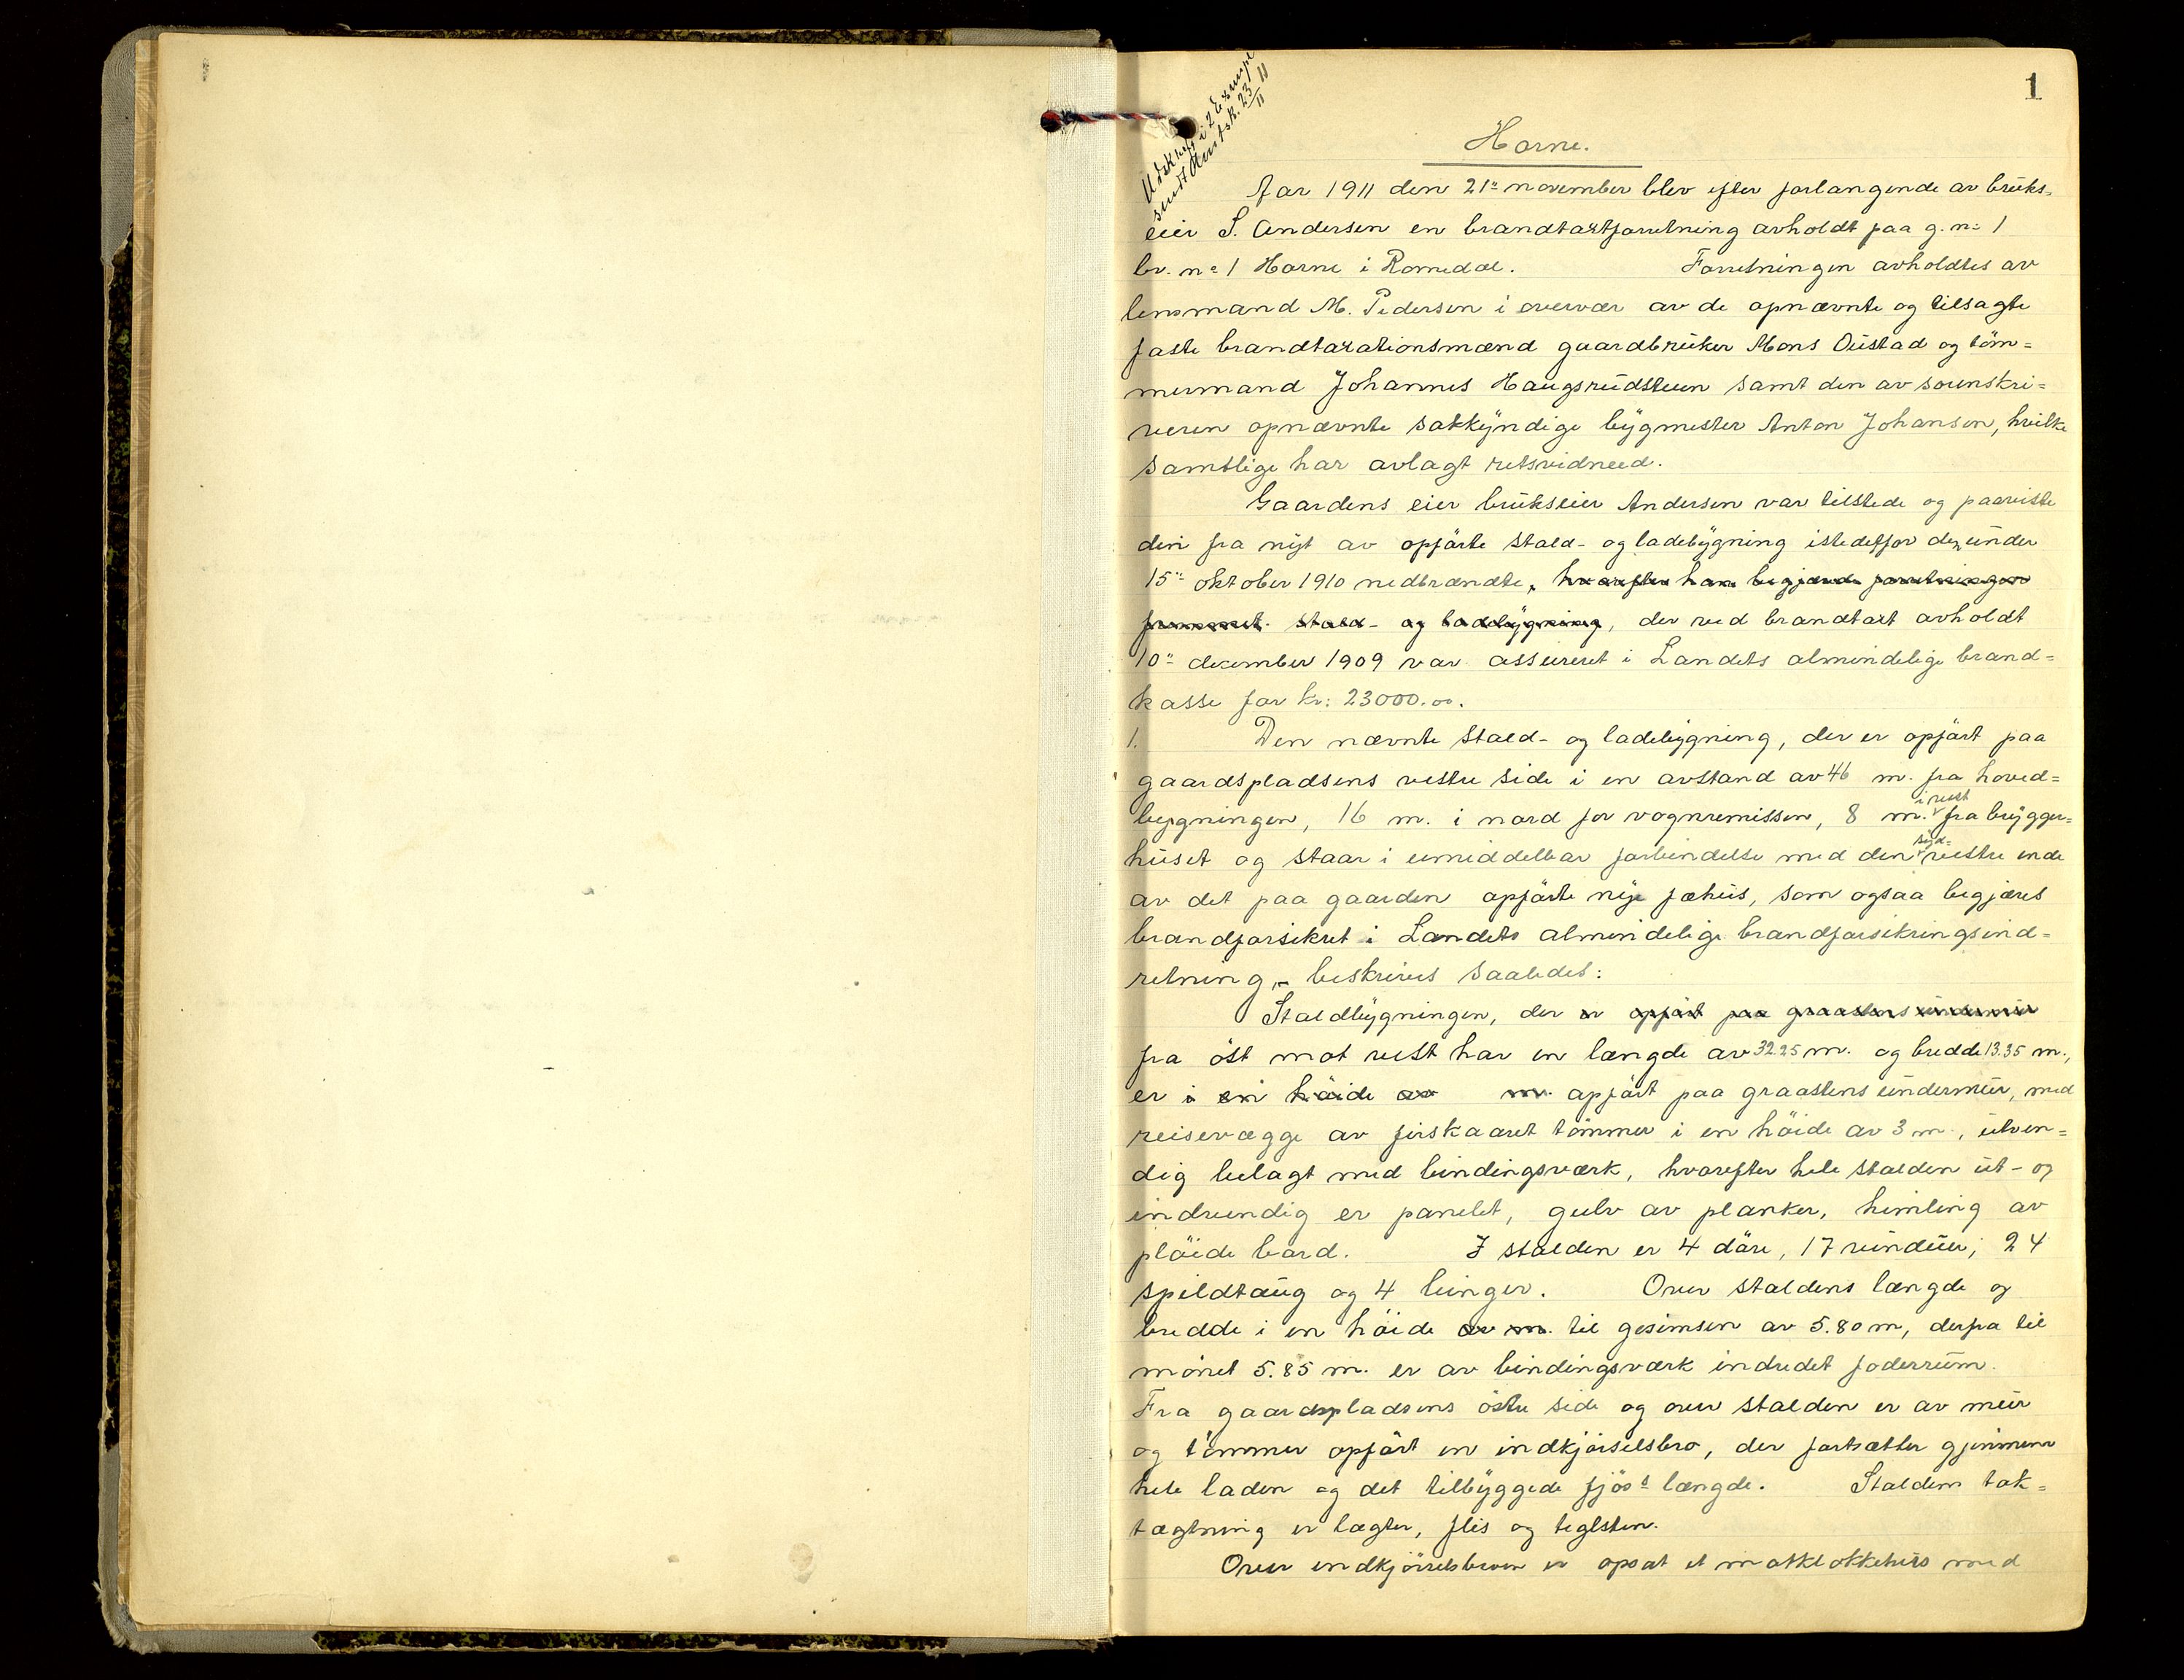 1
Utskrift i 2 Exempl
sendt Amtsk. 23/11 11
Horne.
Aar 1911 den 21" november blev efter forlangende av bruks-
eier S. Andersen en brandtaxtforretning avholdt paa g. n: 1
br. no 1 Horne i Romedal. Forretningen avholdtes av
lensmand M. Pedersen i overvær av de opnævnte og tilsagte
faste brandtaxationsmænd gaardbruker Mons Oustad og töm=
mermand Johannes Haugsrudsteen samt den av sorenskri=
veren opnævnte sakkyndige bygmester Anton Johansen, hvilke
samtlige har avlagt retsvidneed.
Gaardens eier brukseier Andersen var tilstede og paaviste
den fra nyt av opförte stald- og ladebygning istedetfor den under
15" oktober 1910 nedbrændte, hvorefter han begjærede forretningen
fremmet. stald- og ladebygning, der ved brandtaxt avholdt
10" december 1909 var assureret i Landets almindelige brand=
kasse for kr: 23000.00.
1. Den nævnte stald- og ladebygning, der er opfört paa
gaardspladsens vestre side i en avstand av 46 m. fra hoved=
bygningen, 16 m. i nord for vognremissen, 8 m. i vest fra brygger=
huset og staar i umiddelbar forbindelse med den syd= vestre ende
av det paa gaarden opförte nye fæhus, som ogsaa begjæres
brandforsikret i Landets almindelige brandforsikringsind=
retning, - beskrives saaledes:
Staldbygningen, der er opfört paa graastens undermur
fra öst mot vest har en længde av 32.25 m. og bredde 13.35 m.,
er i en höide av m. opfört paa graastens undermur, med
reisevægge av firskaaret tömmer i en höide av 3 m., utven=
dig belagt med bindingsværk, hvorefter hele stalden ut- og
indvendig er panelet, gulv av planker, himling av
plöide bord. I stalden er 4 döre, 17 vinduer, 24
spildtaug og 4 binger. Over staldens længde og
bredde i en höide av m. til gesimsen av 5.80 m, derfra til
mönet 5.85 m. er av bindingsværk indredet foderrum.
Fra gaardspladsens östre side og over stalden er av mur
og tömmer opfört en indkjörselsbro, der fortsætter gjennem
hele laden og det tilbyggede fjös's længde. Staldens tak=
tægtning er lægter, flis og teglsten.
Over indkjörselsbroen er opsat et matklokkehus med